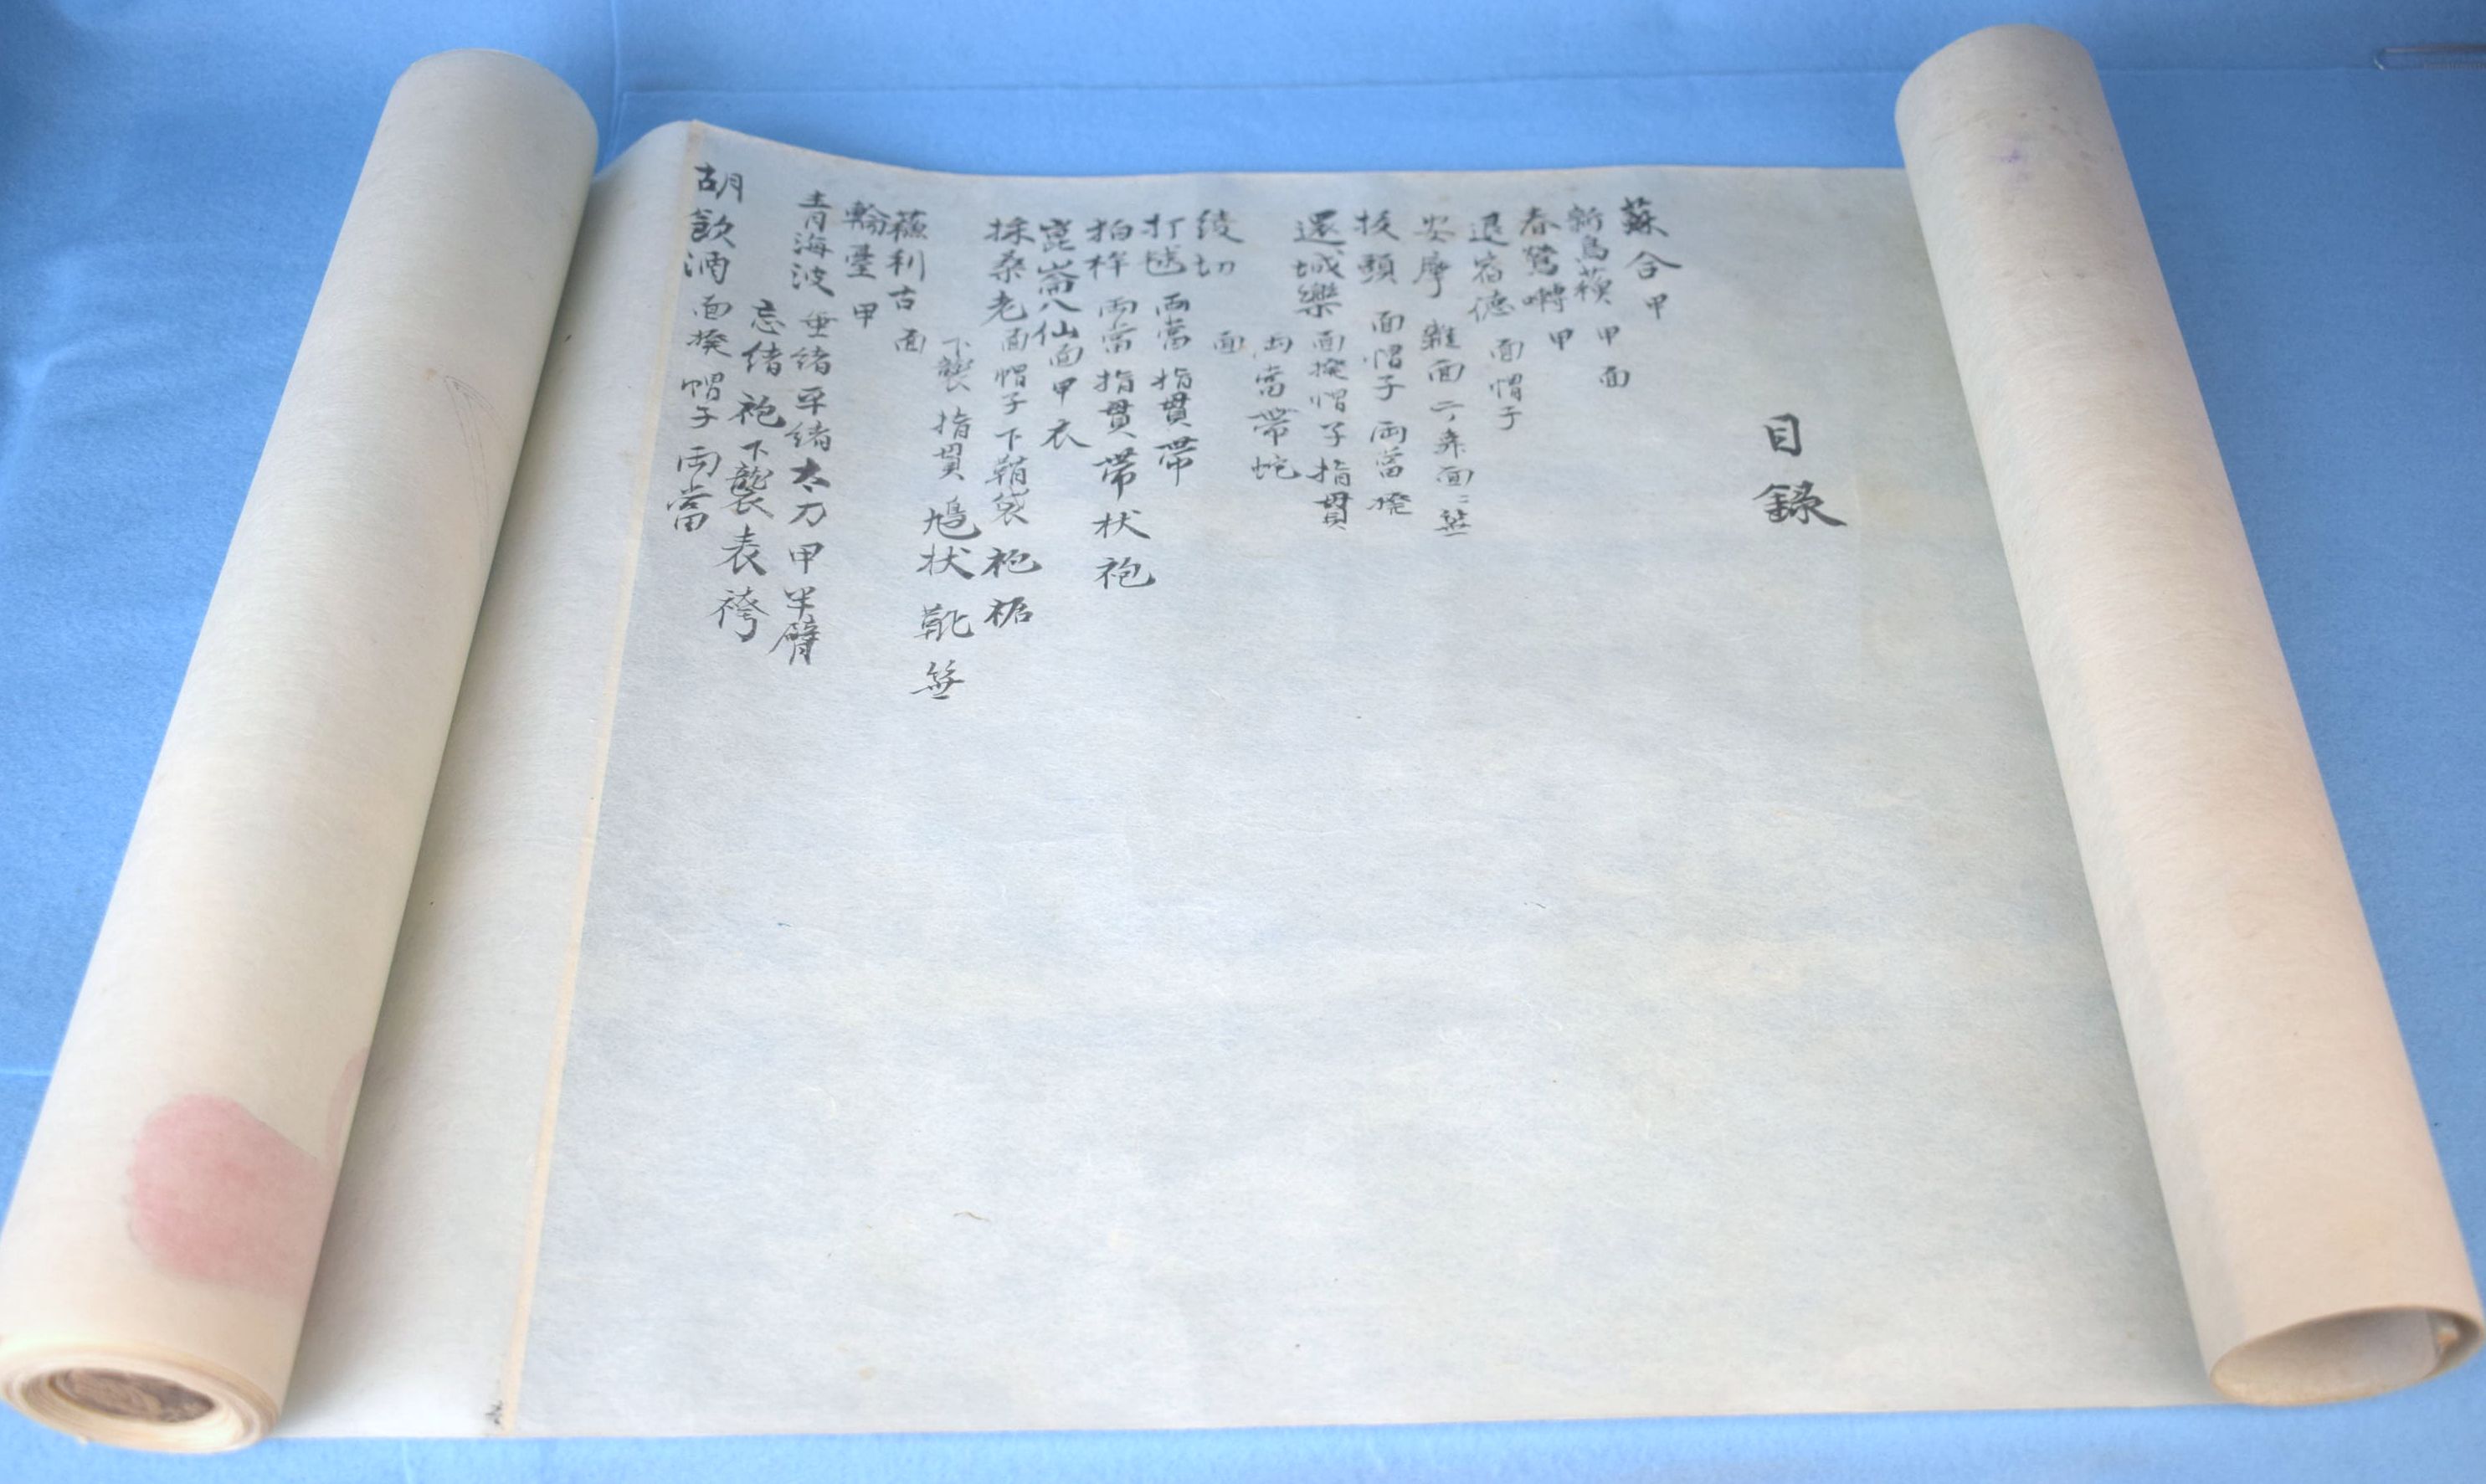 目録
蘇合 甲
新鳥蘇 甲 面
春鶯囀 甲
退宿德 面 帽子
安摩 雜面 二ノ舞面
拔頭 面 帽子 両當 桴
還城樂 面 桴 帽子 指貫
両當 帯 蛇
綾切 面
打毬 両當 指貫 帯
拍桙 両當 指貫 帯 状 袍
崑崙八仙 面 甲 衣
採桑老 面 帽子 下鞘 袋 袍 裾
下襲 指貫 鳩状 靴 莚
蘓利古 面
輪臺 甲
青海波 垂緒 平緒 太刀 甲 半臂
忘緒 袍 下襲 表袴
胡飲酒 面 桴 帽子 両當